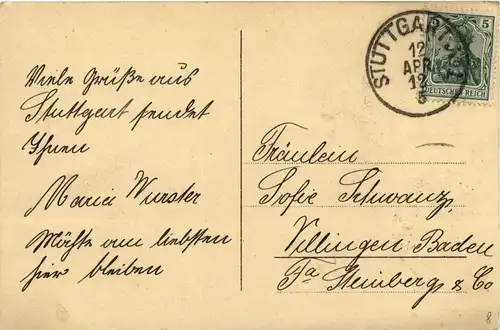 Viele Grüße aus
Stuttgart sendet
Ihnen
Maria Wurster
Möchte am liebsten
hier bleiben
STUTTGART
12
APR
12
5
5 5
DEUTSCHES REICH
Fräulein
Sofie Schwanz
Villingen Baden
Fa Steinberg & Co
8